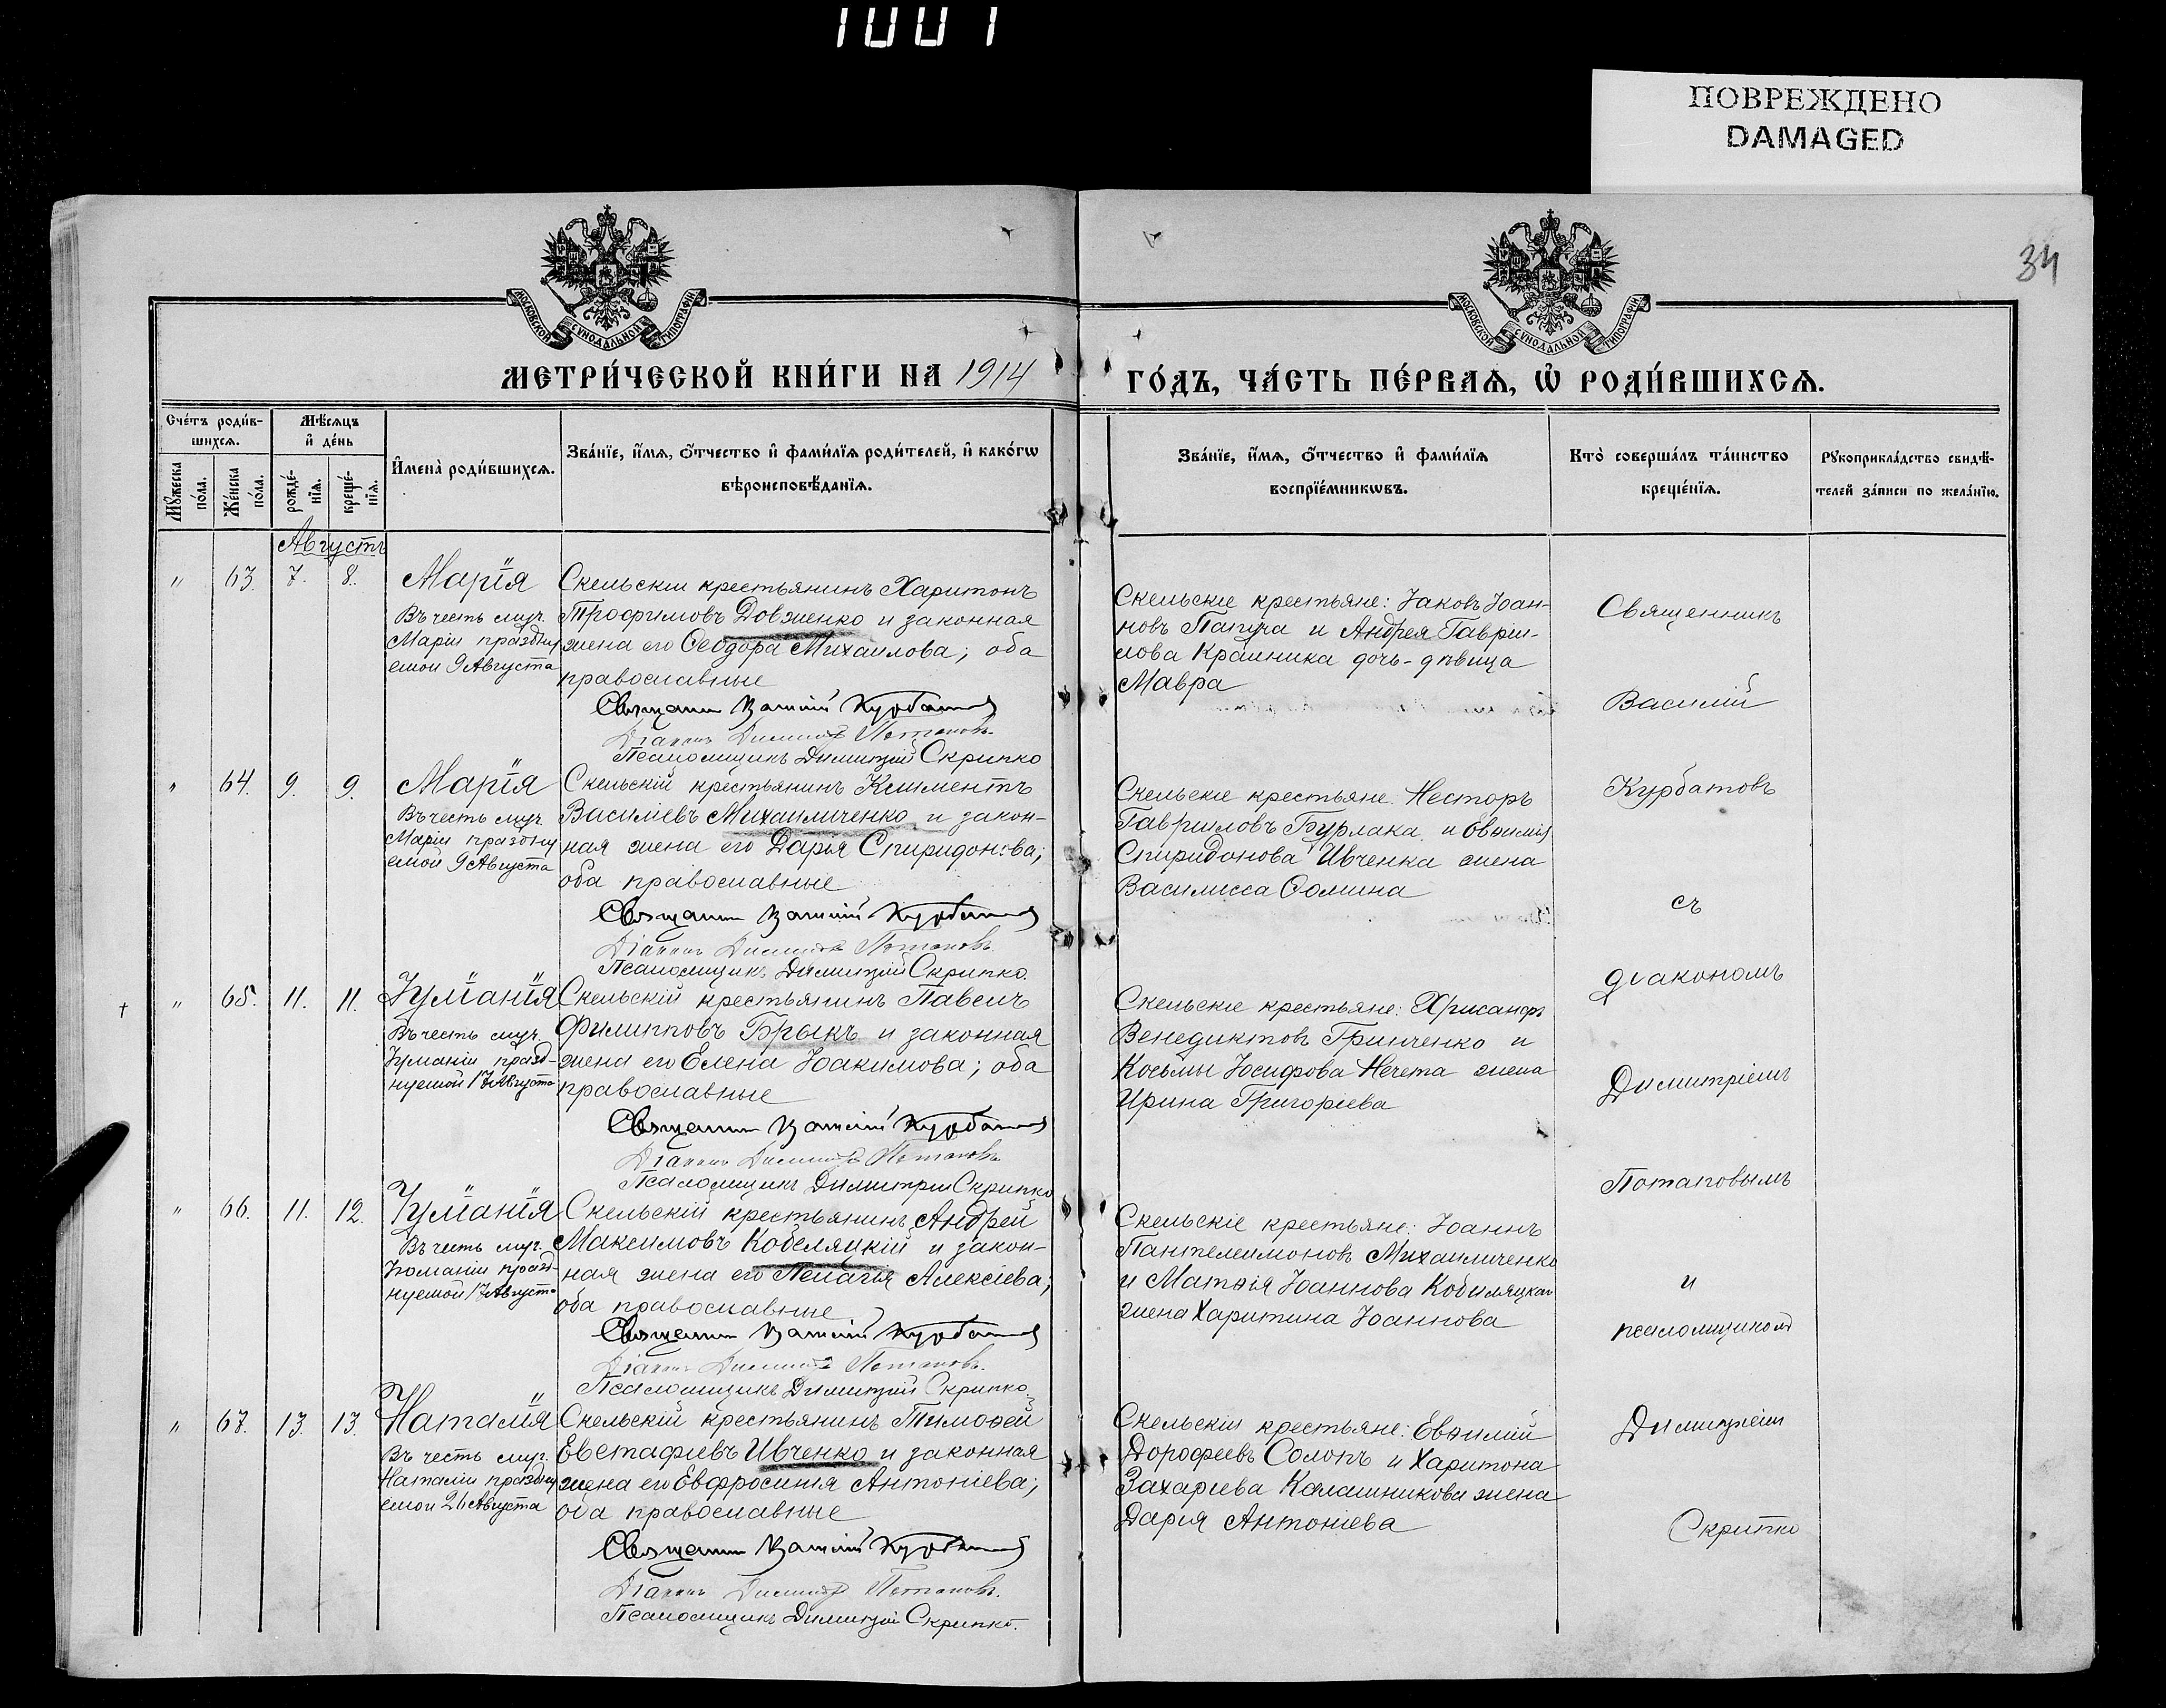 1001
ПОВРЕЖДЕНО
DAMAGED
34
МОСКОВСКОЙ СѴНОДАЛЬНОЙ ТИПОГРАФІИ
МОСКОВСКОЙ СѴНОДАЛЬНОЙ ТИПОГРАФІИ
МЕТРИ́ЧЕСКОЙ КНИ́ГИ НА 1914
ГО́ДЪ, ЧА́СТЬ ПЕ́РВАѦ, Ѡ҆ РОДИ́ВШИХСѦ.
Сче́тъ роди́в-
шихсѧ.
Мꙋ́жеска по́ла.
Же́нска по́ла.
Мѣ́сѧцъ
и҆ де́нь
рожде́-
нїѧ.
креще́-
нїѧ.
И҆мена̀ роди́вшихсѧ.
Зва́нїе, и҆́мѧ, ѻ҆́тчество и҆ фами́лїѧ роди́телей, и҆ како́гѡ
вѣроисповѣ́данїѧ.
Зва́нїе, и҆́мѧ, ѻ҆́тчество и҆ фами́лїѧ
воспрїе́мникѡвъ.
Кто̀ соверша́лъ та́инство
креще́нїѧ.
Рꙋкоприкла́дство свидѣ́-
телей за́писи по жела́нїю.
Августъ
" 63. 7. 8. Марія
Въ честь муч.
Маріи праздну
емой 9 Августа
Скельскій крестьянинъ Харитонъ
Трофимовъ Довженко и законная
жена его Ѳеодора Михаилова; оба
православные
Священн Василій Курбатов
Діаконъ Димитрій Потаповъ.
Псаломщикъ Димитрій Скрипко
Скельскіе крестьяне: Іаковъ Іоан-
новъ Папуча и Андрея Гавріи-
лова Крайника дочь-дѣвица
Мавра
" 64. 9. 9. Марія
Въ честь муч.
Маріи праздну
емой 9 Августа
Скельскій крестьянинъ Климентъ
Василіевъ Михаиличенко и закон-
ная жена его Дарья Спиридонова;
оба православные
Священн Василій Курбатов
Діаконъ Димитрій Потаповъ.
Псаломщикъ Димитрій Скрипко.
Скельскіе крестьяне Несторъ
Гавріиловъ Бурлака и Евѳимія
Спиридонова Ивченка жена
Василисса Ѳомина
" 65. 11. 11. Іуліанія
Въ честь муч.
Іуліаніи празд-
нуемой 17 Августа
Скельскій крестьянинъ Павелъ
Филипповъ Брыкъ и законная
жена его Елена Іоакимова; оба
православные
Священн Василій Курбатов
Діаконъ Димитрій Потаповъ.
Псаломщикъ Димитрій Скрипко
Скельскіе крестьяне: Хрисанфъ
Венедиктовъ Гринченко и
Косьмы Іосифова Нечета жена
Ирина Григоріева
" 66. 11. 12. Іуліанія
Въ честь муч.
нуемой 17 Августа
Скельскій крестьянинъ Андрей
Максимовъ Кобеляцкій и закон-
ная жена его Пелагія Алексіева;
оба православные
Священн Василій Курбатов
Діаконъ Димитрій Потаповъ.
Псаломщикъ Димитрій Скрипко.
Скельскіе крестьяне: Іоаннъ
Пантелеимоновъ Михаиличенко
и Матѳія Іоаннова
жена Харитина Іоаннова
" 67. 13. 13. Наталія
Въ честь муч.
Наталіи праздну
емой 26 Августа
Скельскій крестьянинъ Тимоѳей
Евстафіевъ Ивченко и законная
жена его Евфросинія Антоніева;
оба православные
Священн Василій Курбатов
Діаконъ Димитрій Потаповъ.
Псаломщикъ Димитрій Скрипко.
Скельскіи крестьяне: Евѳимій
Дорофеевъ Солопъ и Харитона
Захаріева Калашникова жена
Дарія Антоніева
Священникъ
Василій
Курбатовъ
съ
діакономъ
Димитріемъ
Потаповымъ
и
псаломщикомъ
Димитріемъ
Скрипко